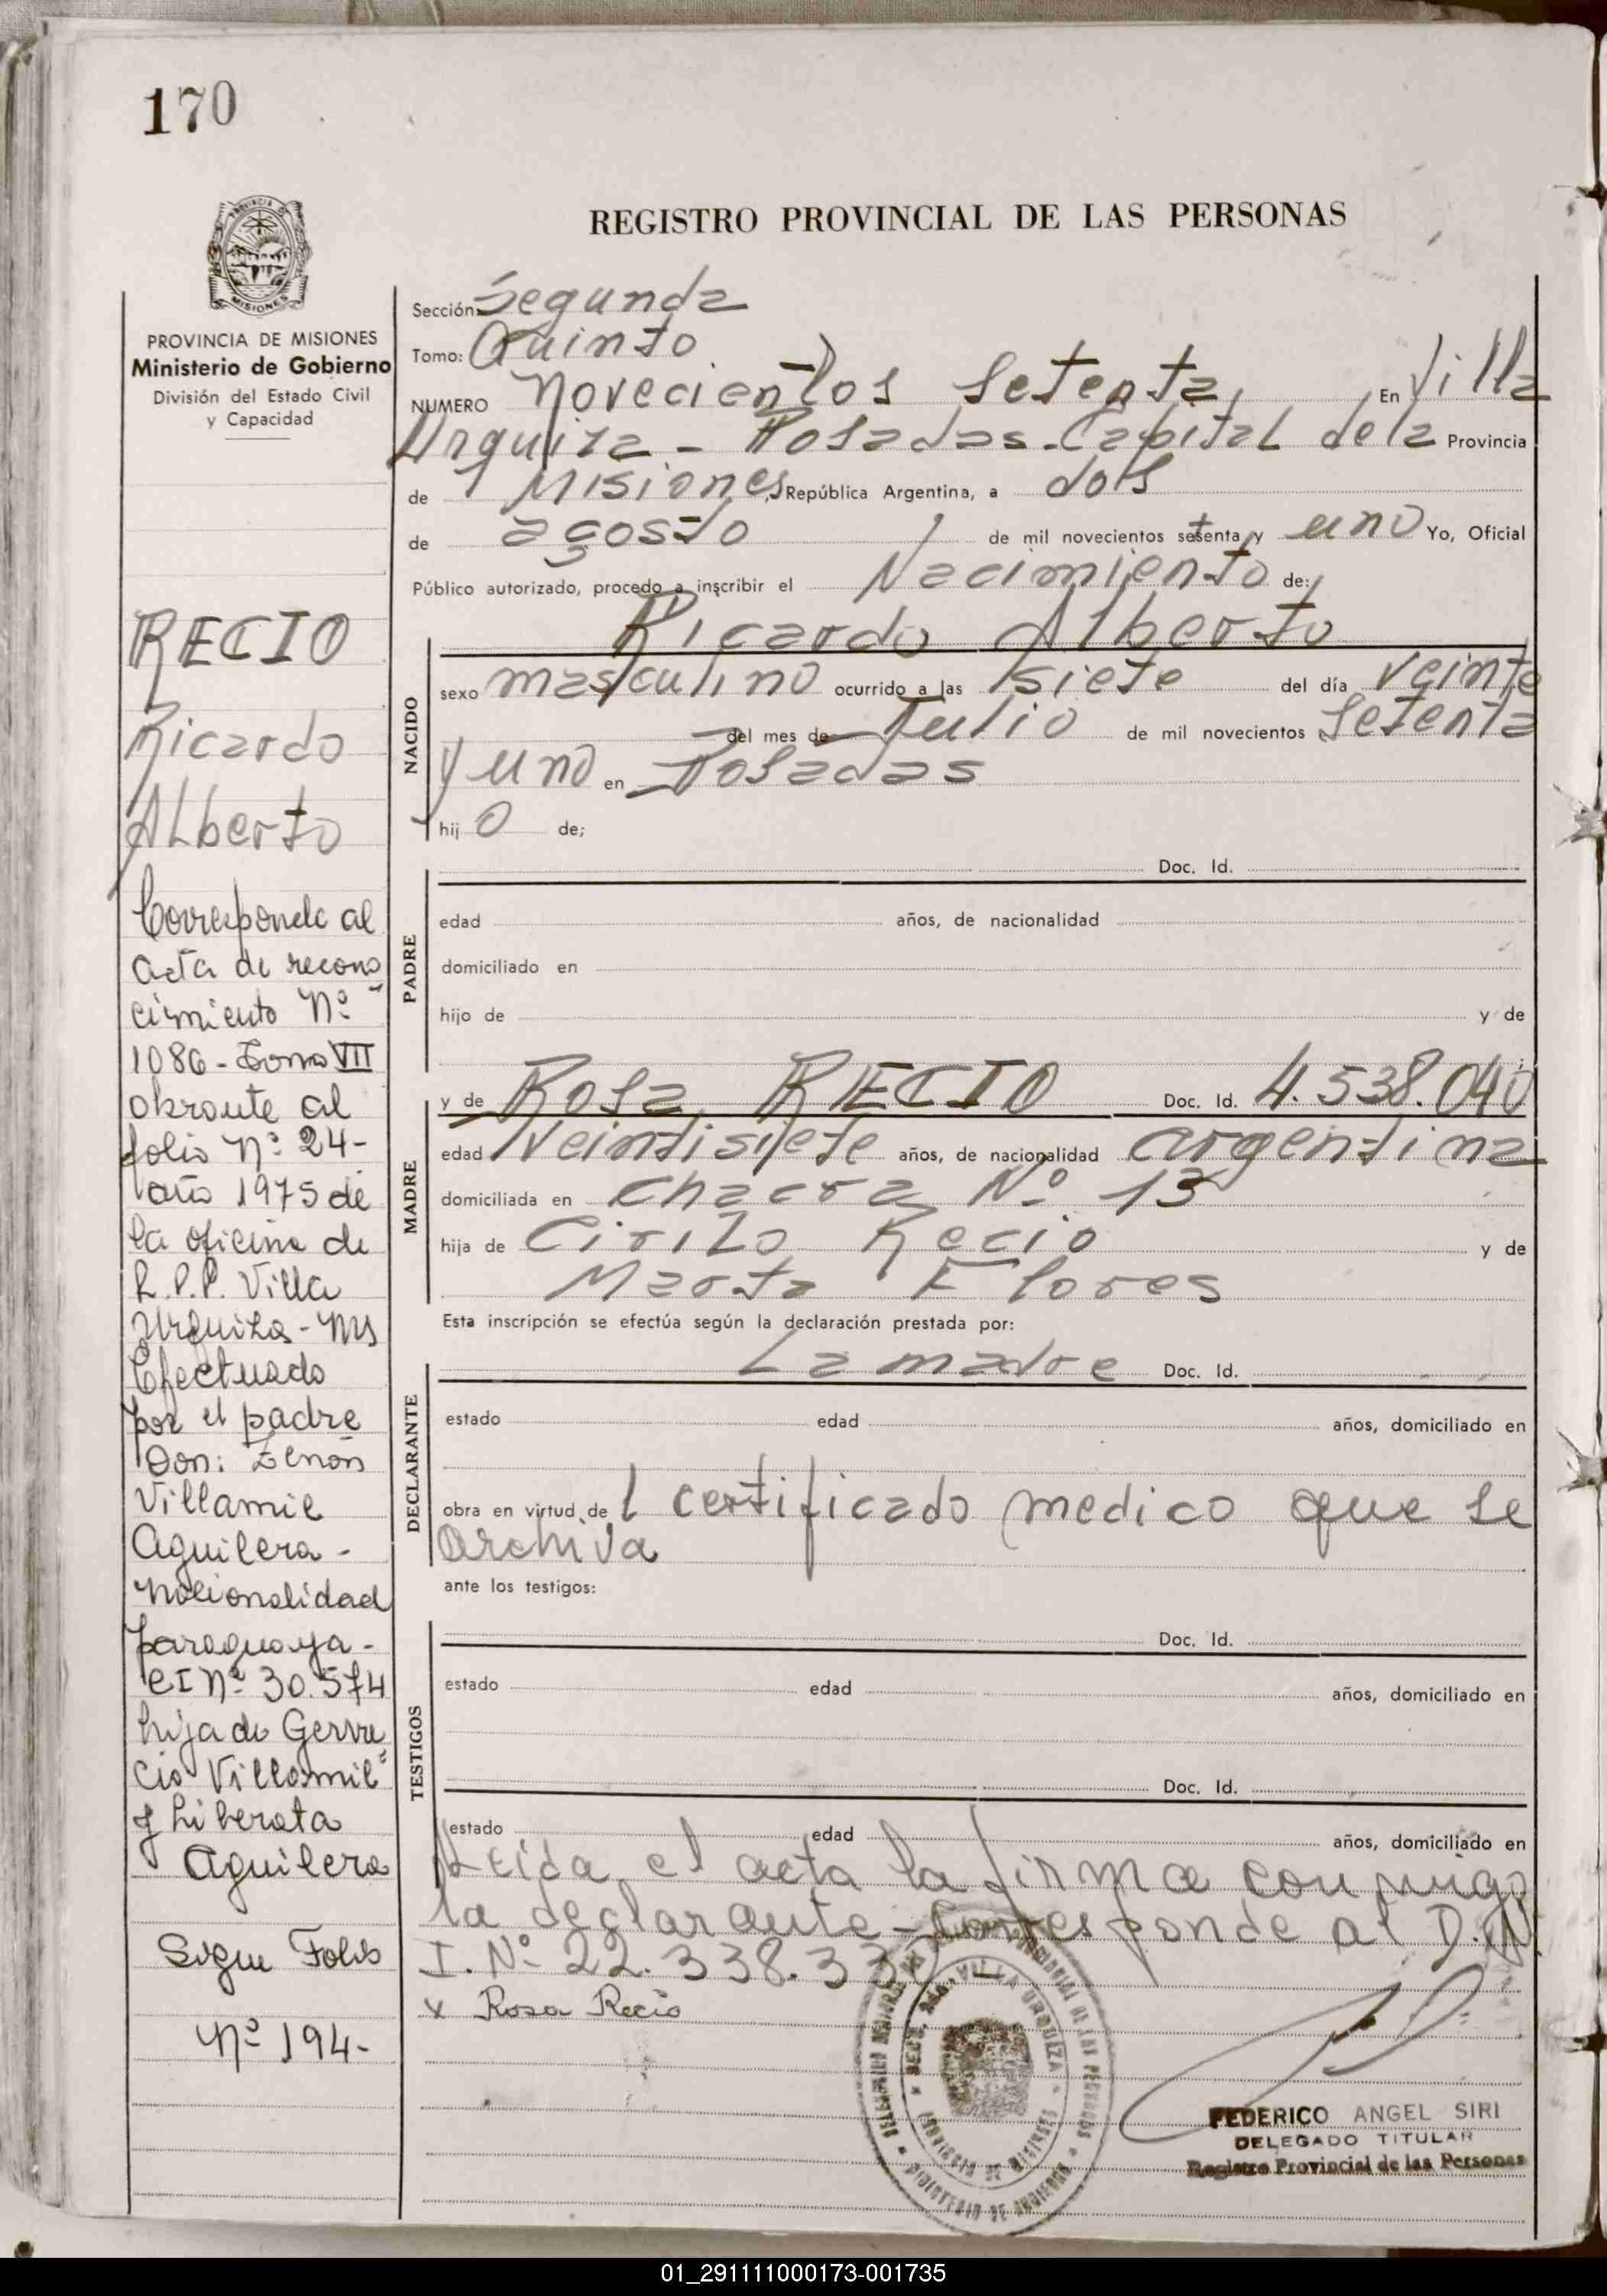 170
PROVINCIA DE MISIONES
Ministerio de Gobierno
División del Estado Civil
y Capacidad
RECIO
Ricardo
Alberto
Corresponde al
acta de recono
cimiento Nº
1086 - Tomo VII
obrante al
folio Nº 24-
año 1975 de
la oficina de
R.P.P. Villa
Urquiza - Ms
Efectuado
por el padre
Don: Zenón
Villamil
Aguilera -
nacionalidad
paraguaya -
CI Nº 30.574
hijo de Gerva
cio Villamil
y Liberata
Aguilera
Sigue Folio
Nº 194-
REGISTRO PROVINCIAL DE LAS PERSONAS
Sección: Segunda
Tomo: Quinto
NUMERO Novecientos Setenta En Villa
Urquiza - Posadas - Capital de la Provincia
de Misiones, República Argentina, a dos
de agosto de mil novecientos setenta y uno Yo, Oficial
Público autorizado, procedo a inscribir el Nacimiento de:
Ricardo Alberto
NACIDO
sexo masculino ocurrido a las siete del día veinte
del mes de Julio de mil novecientos Setenta
y uno en Posadas
hij o de;
Doc. Id.
PADRE
edad años, de nacionalidad
domiciliado en
hijo de y de
y de Rosa RECIO Doc. Id. 4.538.040
MADRE
edad Veintisiete años, de nacionalidad argentina
domiciliada en chacra Nº 13
hija de Cirilo Recio y de
Marta Flores
Esta inscripción se efectúa según la declaración prestada por:
La madre Doc. Id.
DECLARANTE
estado edad años, domiciliado en
obra en virtud de l certificado medico que se
archiva
ante los testigos:
Doc. Id.
TESTIGOS
estado edad años, domiciliado en
Doc. Id.
estado edad años, domiciliado en
Leida el acta la firma conmigo
la declarante - Corresponde al D.N.
I. Nº 22.338.332 -
x Rosa Recio
FEDERICO ANGEL SIRI
DELEGADO TITULAR
Registro Provincial de las Personas
01_291111000173-001735